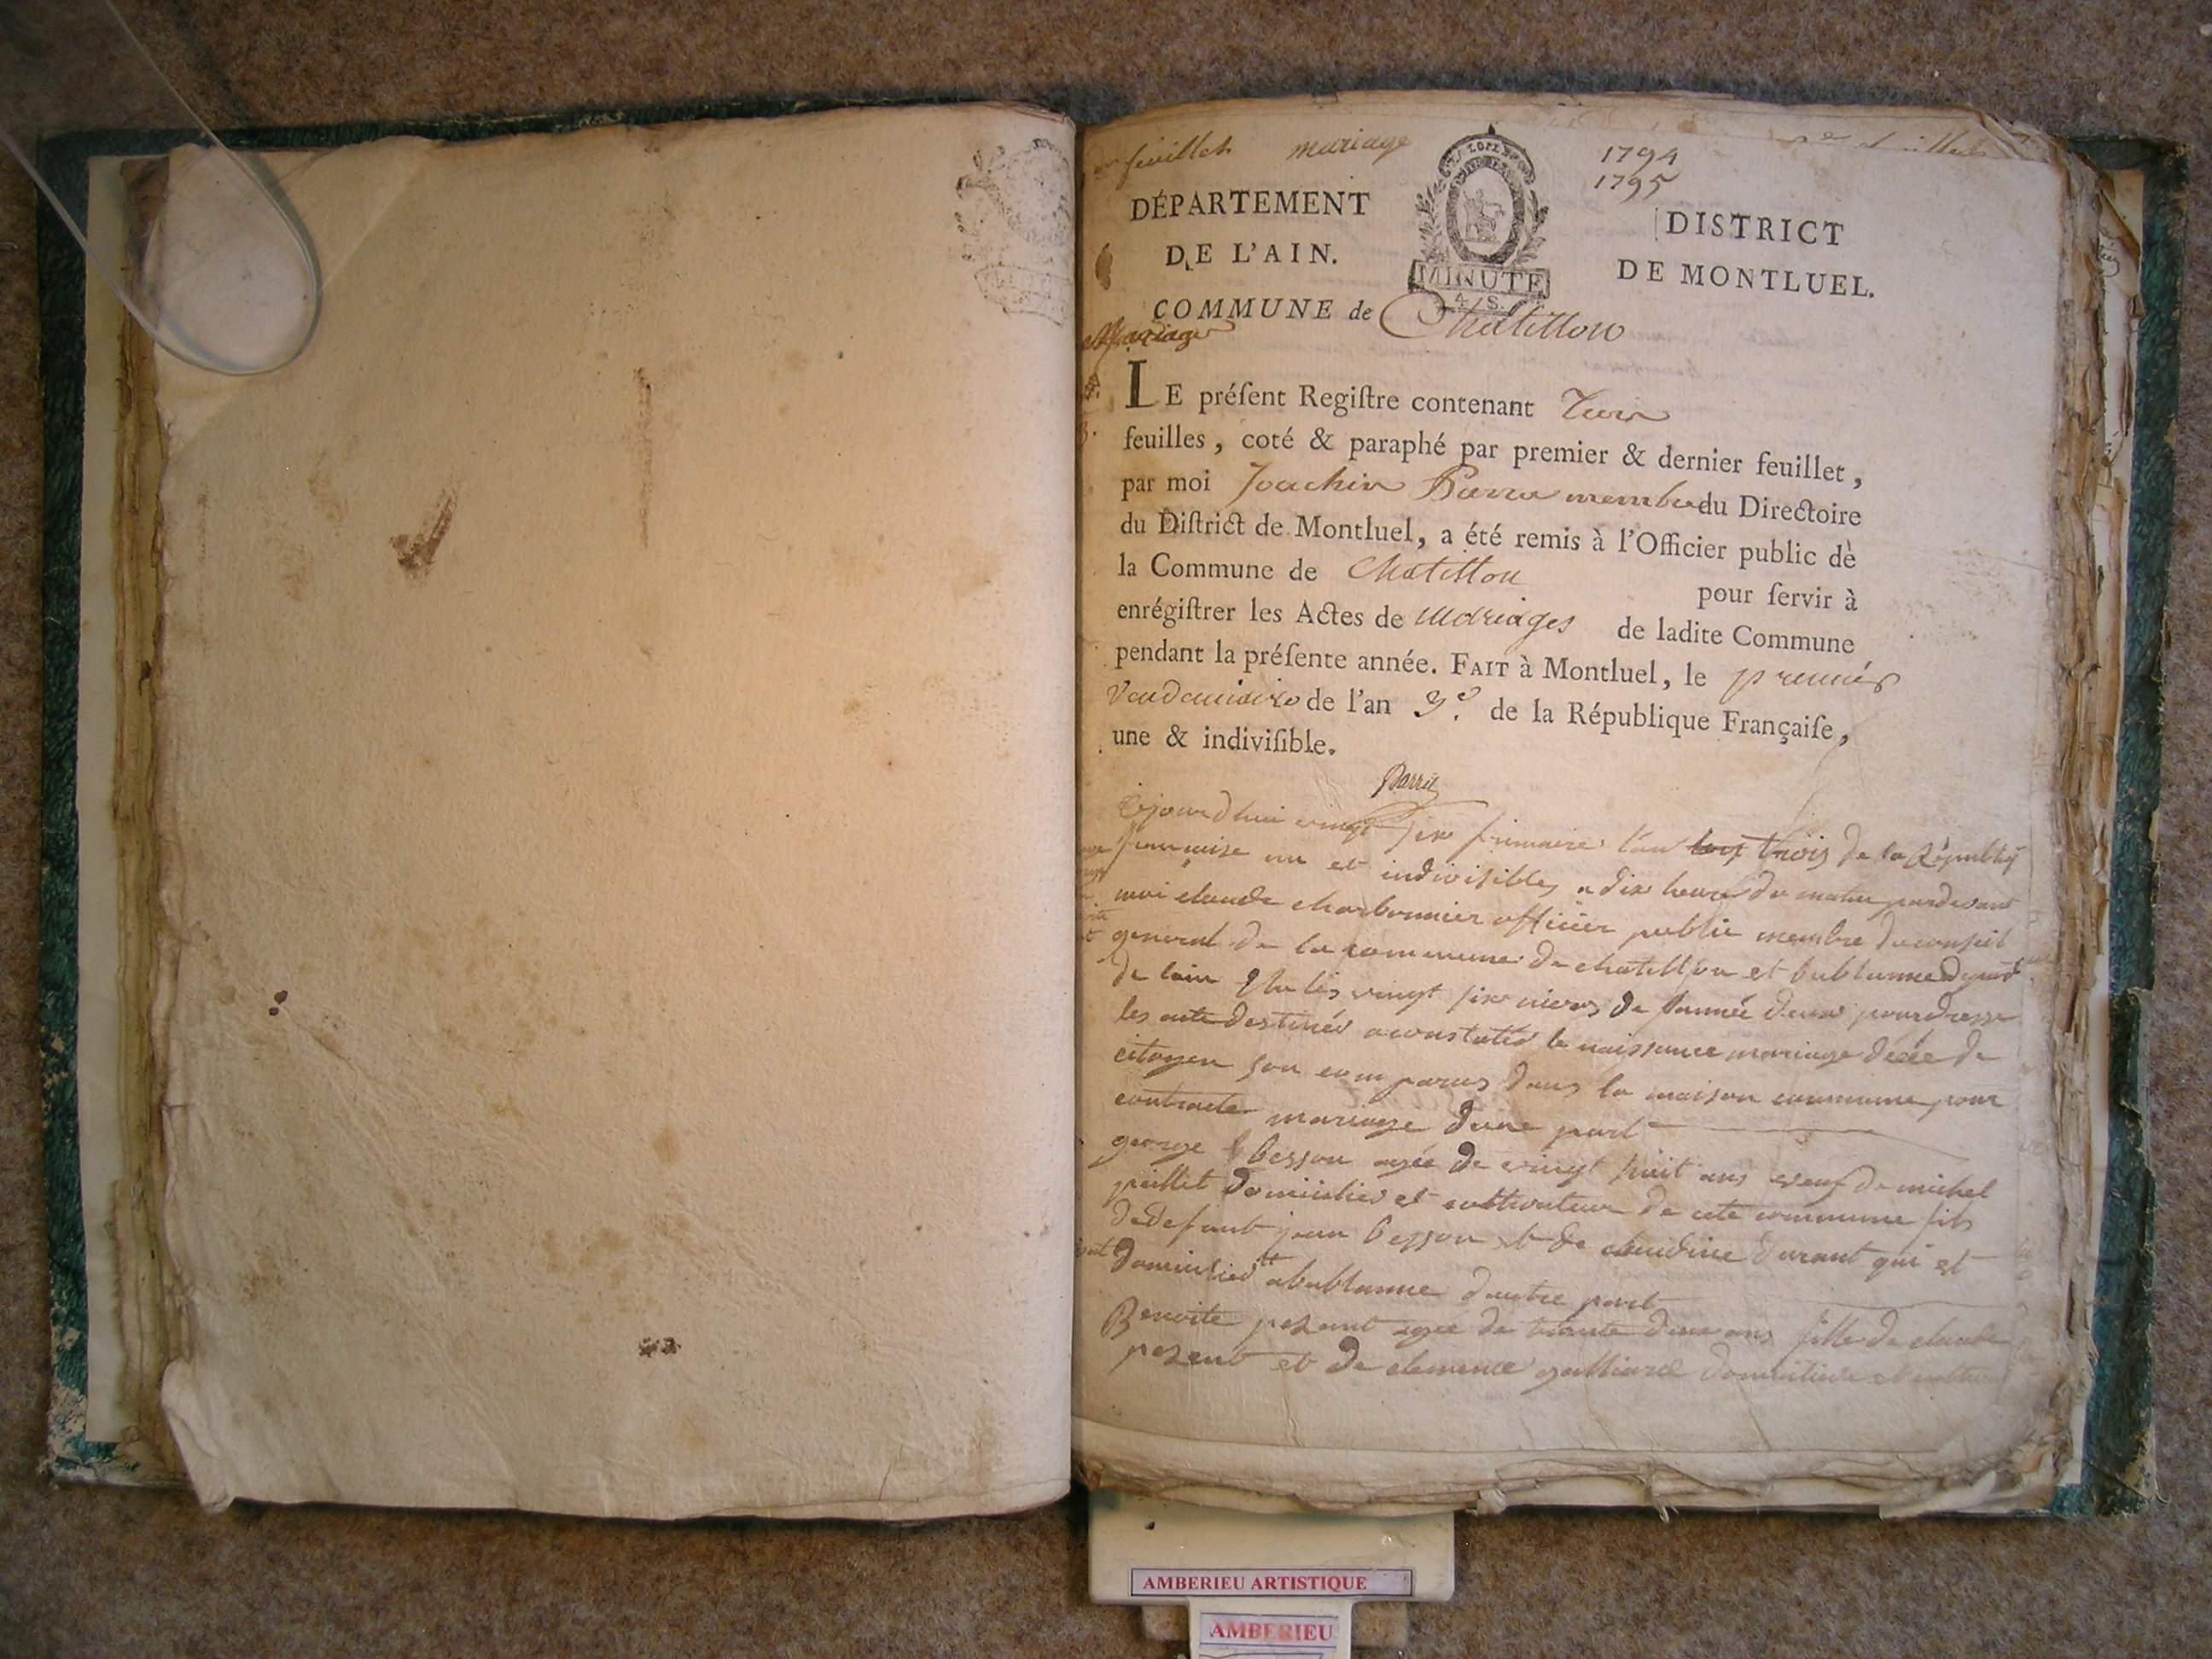 feuillet mariage
1794
1795
DÉPARTEMENT
DE L'AIN.
DISTRICT
DE MONTLUEL.
MINUTE
4 S.
COMMUNE de Chatillon
Mariage
LE préſent Regiſtre contenant
feuilles, coté & paraphé par premier & dernier feuillet,
par moi Joachin membre du Directoire
du Diſtrict de Montluel, a été remis à l'Officier public de
la Commune de Chatillon pour ſervir à
enrégiſtrer les Actes de Mariages de ladite Commune
pendant la préſente année. FAIT à Montluel, le premier
Vendemiaire de l'an 3e. de la République Françaiſe,
une & indiviſible.
vingt six frimaire l'an trois de la Republiq
française un et indivisibles a dix heure du matin pardevant
moi claude charbonnier officier public membre du conseil
general de la commune de chatillon et bublanne
de lain vingt six de lannée deux pour dresse
les acte destinés a constatés le naissance mariage décée de
citoyen son comparus dans la maison commune pour
contracte mariage dune part
george besson agée de vingt huit ans veuf de michel
peillet domicilied et cultivateur de cete commune fils
dedefunt jean besson et de claudine durant qui et
domicilied a bublanne dautre part
Benoite pesent agee de trante deux ans fille de claude
pesent et de clemence galliard
AMBERIEU ARTISTIQUE
AMBERIEU